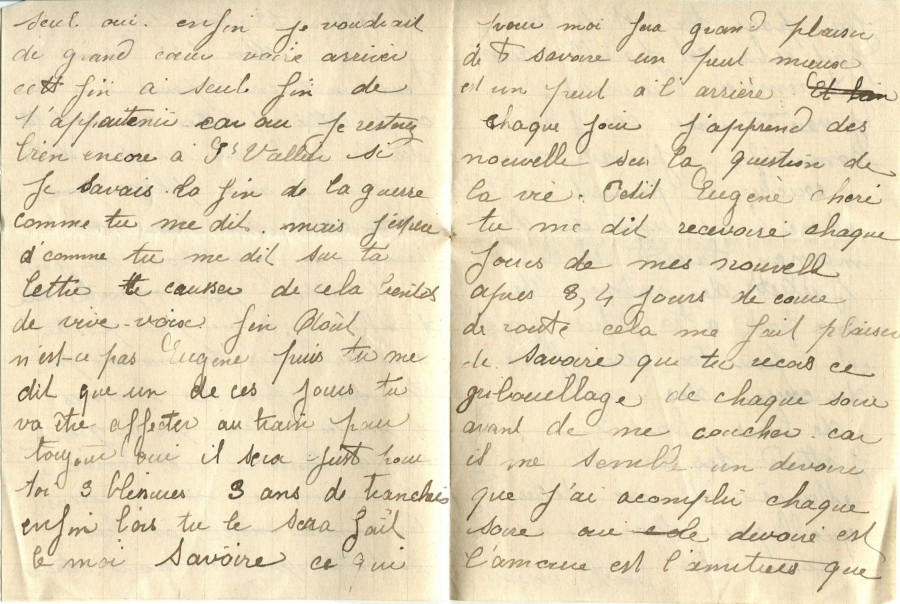 seul oui. enfin je voudrait
de grand cœur voire arriver
cett fin a seul fin de
t'appartenir car ou je restrez
bien encore à St Vallier si
je savais la fin de la guerre
comme tu me dit. mais j'espere
d'comme tu me dit sur ta
lettre te causer de cela bientôt
de vive-voix fin Août
n'est-ce pas Eugène puis tu me
dit que un de ces jours tu
va être affecter au train pour
toujour oui il sera just pour
toi 3 blessures 3 ans de tranchéis
enfin lors tu le sera fait
le moi Savoire ce qui
pour moi fera grand plaisir
de t savoire un peut mieux
est un peut à l'arrière
Chaque jour j'apprend des
nouvelle sur la question de
la vie. Petit Eugène cheri
tu me dit recevoire chaque
jours de mes nouvelle
apres 3, 4 jours de cour
de route cela me fait plaisir
de savoire que tu recois ce
gribouellage de chaque soir
avant de me coucher. car
il me semble un devoire
que j'ai acompli chaque
soire oui ce de devoire est
l'amour est l'amitiees que